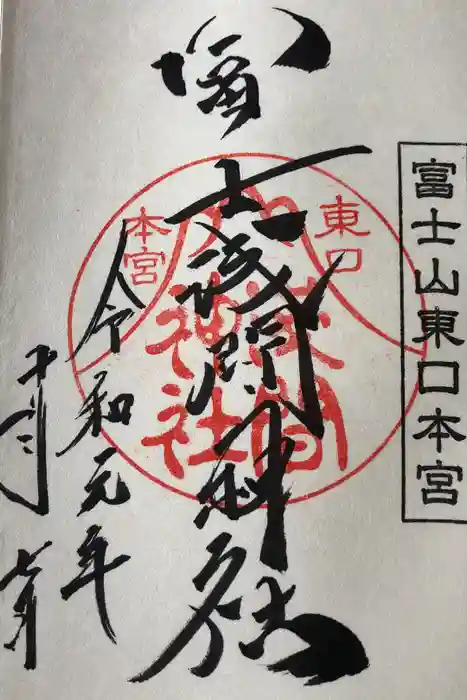 富士山東口本宮
冨士浅間神社
東口
本宮
浅間
神社
令和元年